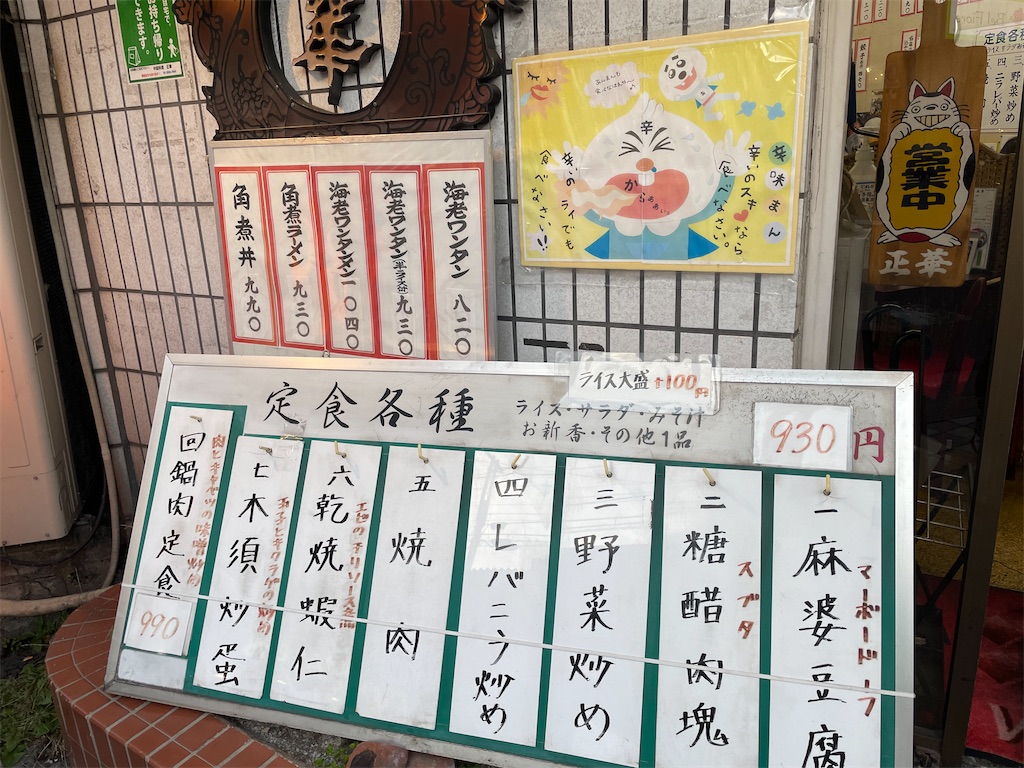 お持ち帰り
できます。
華
海老ワンタン 八二〇
海老ワンタン(半ライス付) 九三〇
海老ワンタンメン 一〇四〇
角煮ラーメン 九三〇
角煮丼 九九〇
辛味まん
辛いのスキ♥なら
食べなさい。
辛
からぁぁい
辛いのキライでも
食べなさい!!
営業中
正華
定食各種
三 野菜炒め
四 ニラレバー炒め
定食各種
ライス・サラダ・みそ汁
お新香・その他1品
ライス大盛 +100円
930円
一 麻婆豆腐
マーボードーフ
二 糖醋肉塊
スブタ
三 野菜炒め
四 レバニラ炒め
五 焼肉
六 乾焼蝦仁
エビのチリソース煮
七 木須炒蛋
玉子とキクラゲの炒め
回鍋肉定食
肉とキャベツの味噌炒め
990